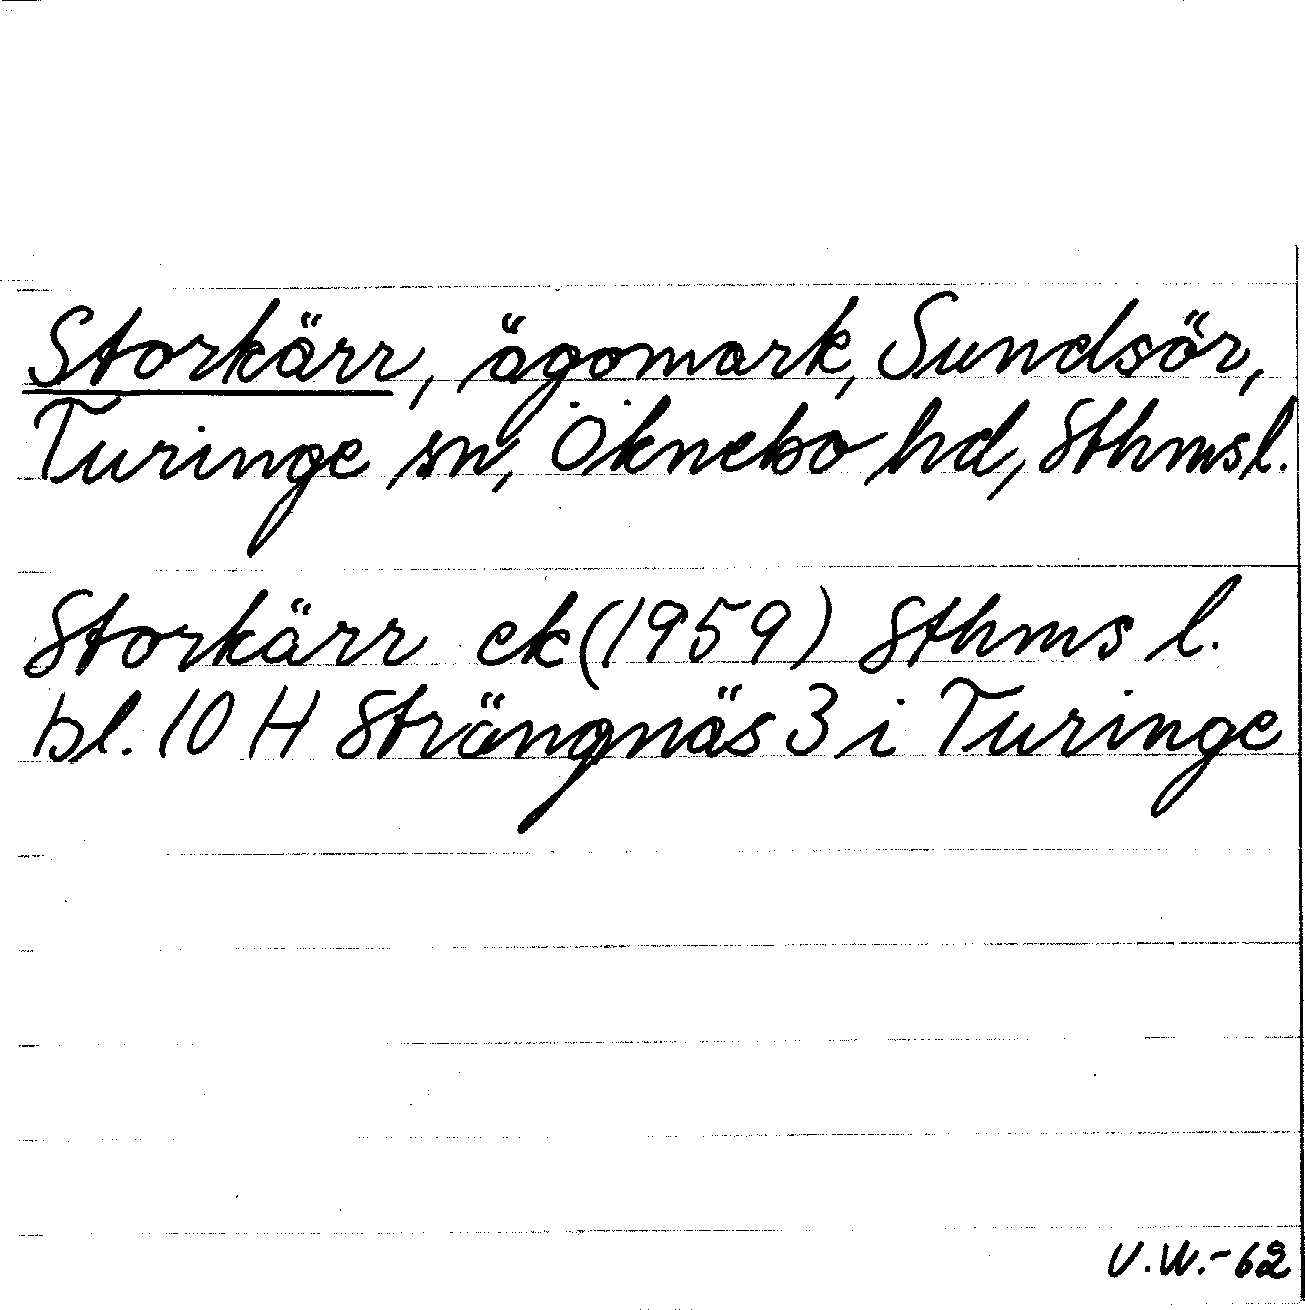 Storkärr, ägomark, Sundsör,
Turinge sn, Öknebo hd, Sthmsl.
Storkärr ek (1959) Sthms l.
bl. 10 H Strängnäs 3 i Turinge
V.W.-62